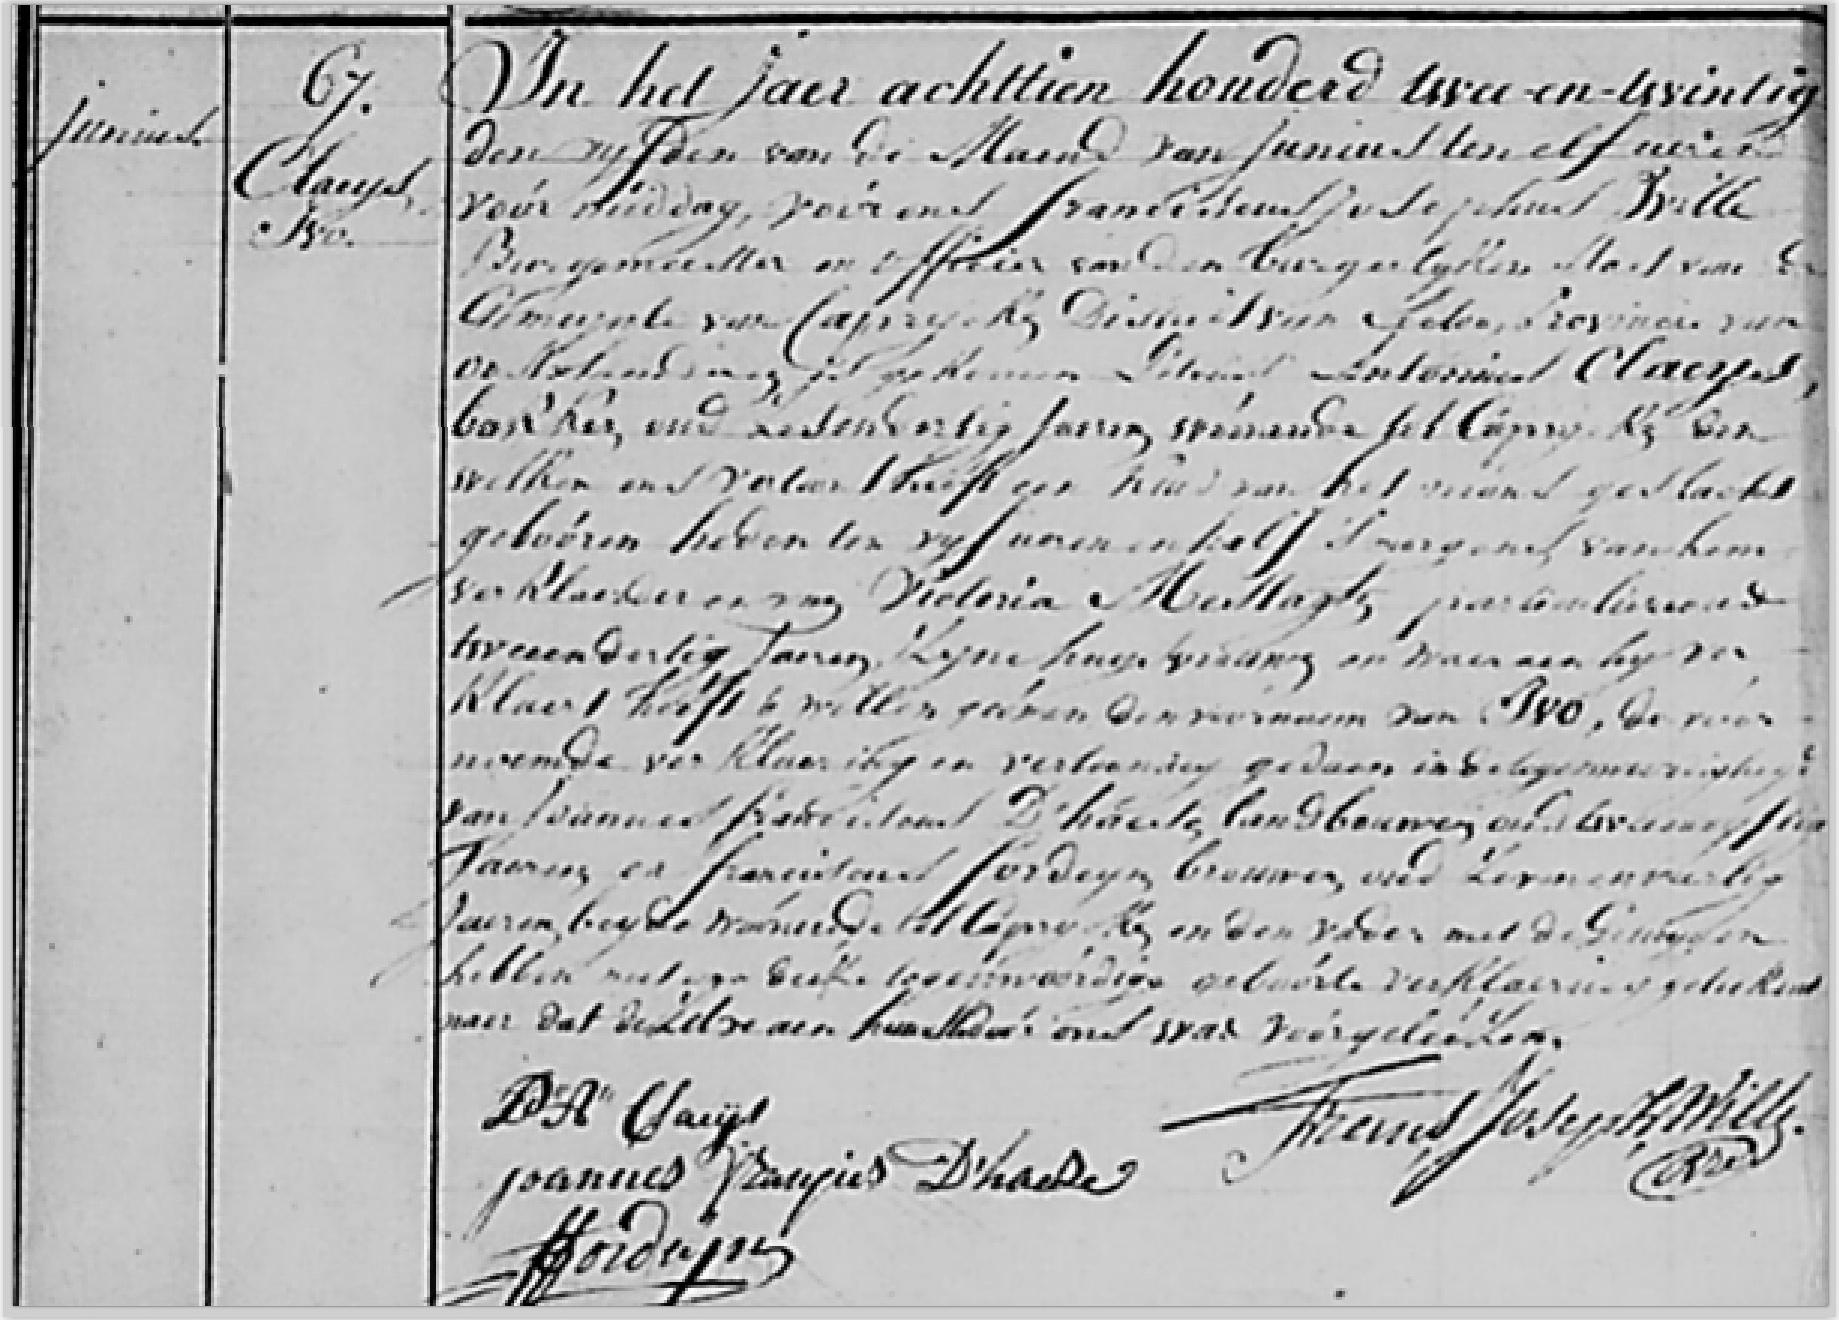 junius
67.
Claeys
Ivo.
In het jaer achttien honderd twee-en-twintig
den vyfden van de Maend van junius ten elf uren
voór middag, voór ons franciscus josephus Wille
Burgemeester en officier van den burgerlyken staet van de
Gemeynte van Capryke, District van Eeloo, Provincie van
oostvlanderen, is gekomen Antonius Claeys,
bakker, oud zesendertig jaeren, wónende tot Capryke, den
welken ons vertoont heéft een kind van het geslacht
gebóren heden ten vyf uren en half 's morgens, van hem
verklaerder en van Victoria Mestagh, particuliere oud
tweendertig jaeren, zyne huysvrouw, en waer aen hy ver
klaert heéft te willen géven den vórnaem van Ivo, de vóór
noemde verklaering en vertooning gedaen in de tegenwoordigheyd
van joannes franciscus D'haese, landbouwer, oud
jaeren, en franciscus Sordeyn, brouwer, oud
jaeren, beyde wónende tot Capryke, en den vader met de Getuygen
hebben met ons deéze tegenwóórdige gebóórte verklaering geteekend
naer dat dezelve aen hun door ons was vóórgeleézen.
Claeys
joannes françies D'haese
Frans Joseph Wille.
Sordeyn